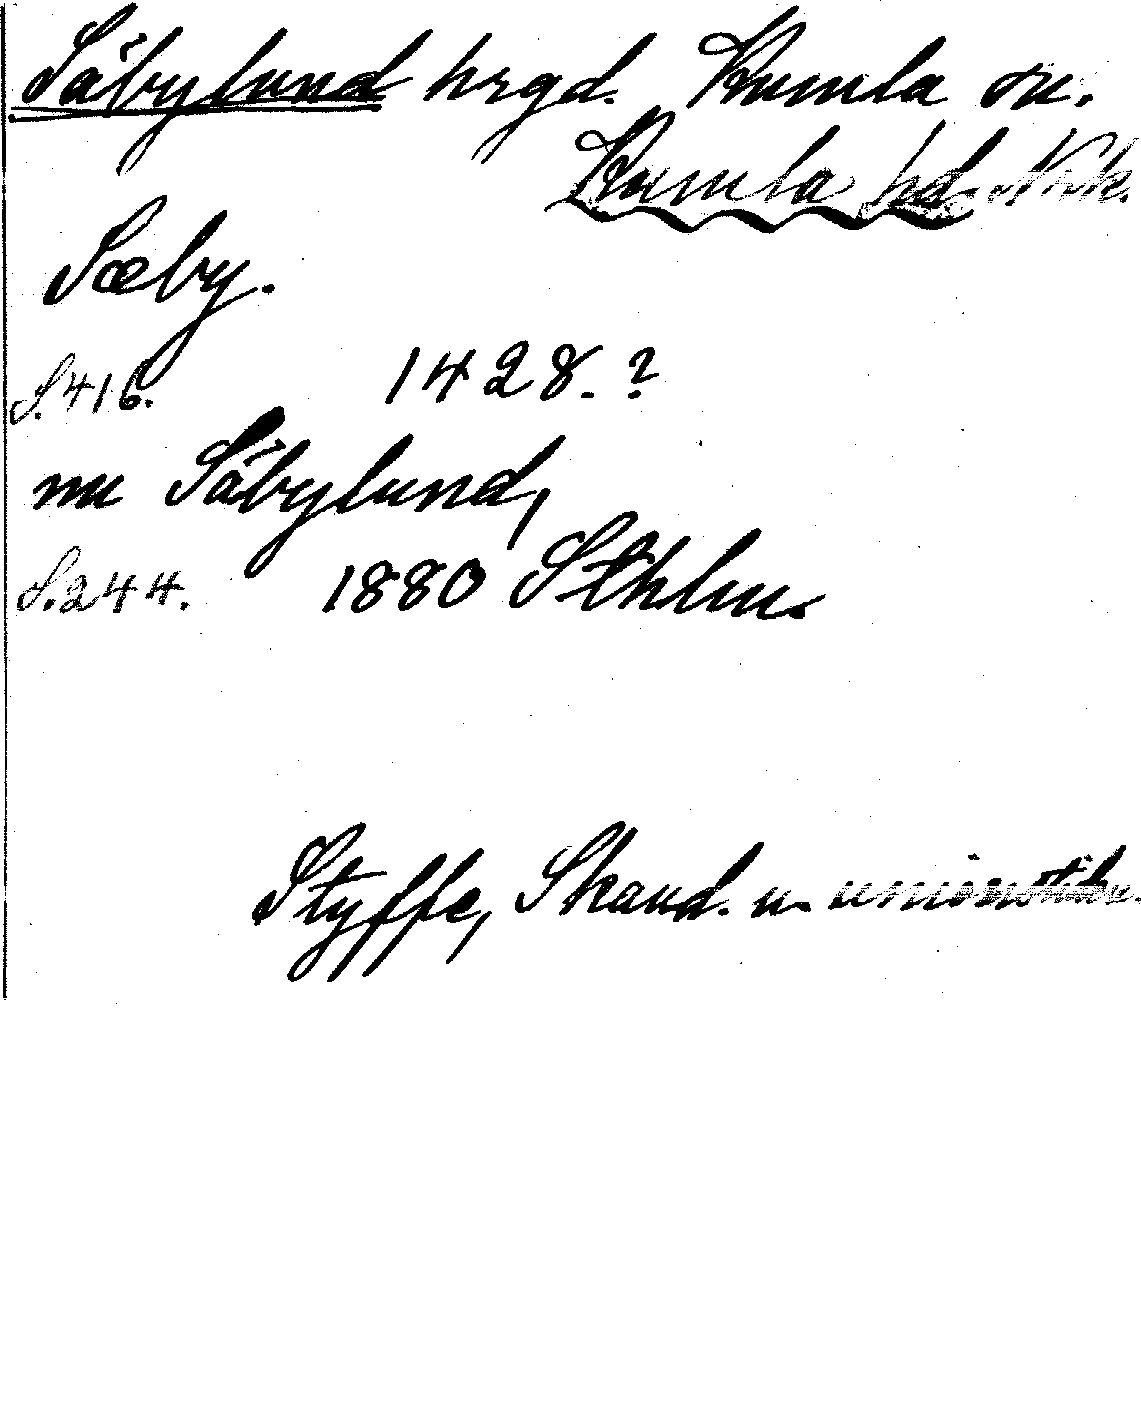 Säbylund hrgd. Kumla sn.
Kumla hd Nrk.
Sæby.
S.416. 1428.?
nu Säbylund,
S.244. 1880 Sthlm.
Styffe, Skand. u. unionstiden.